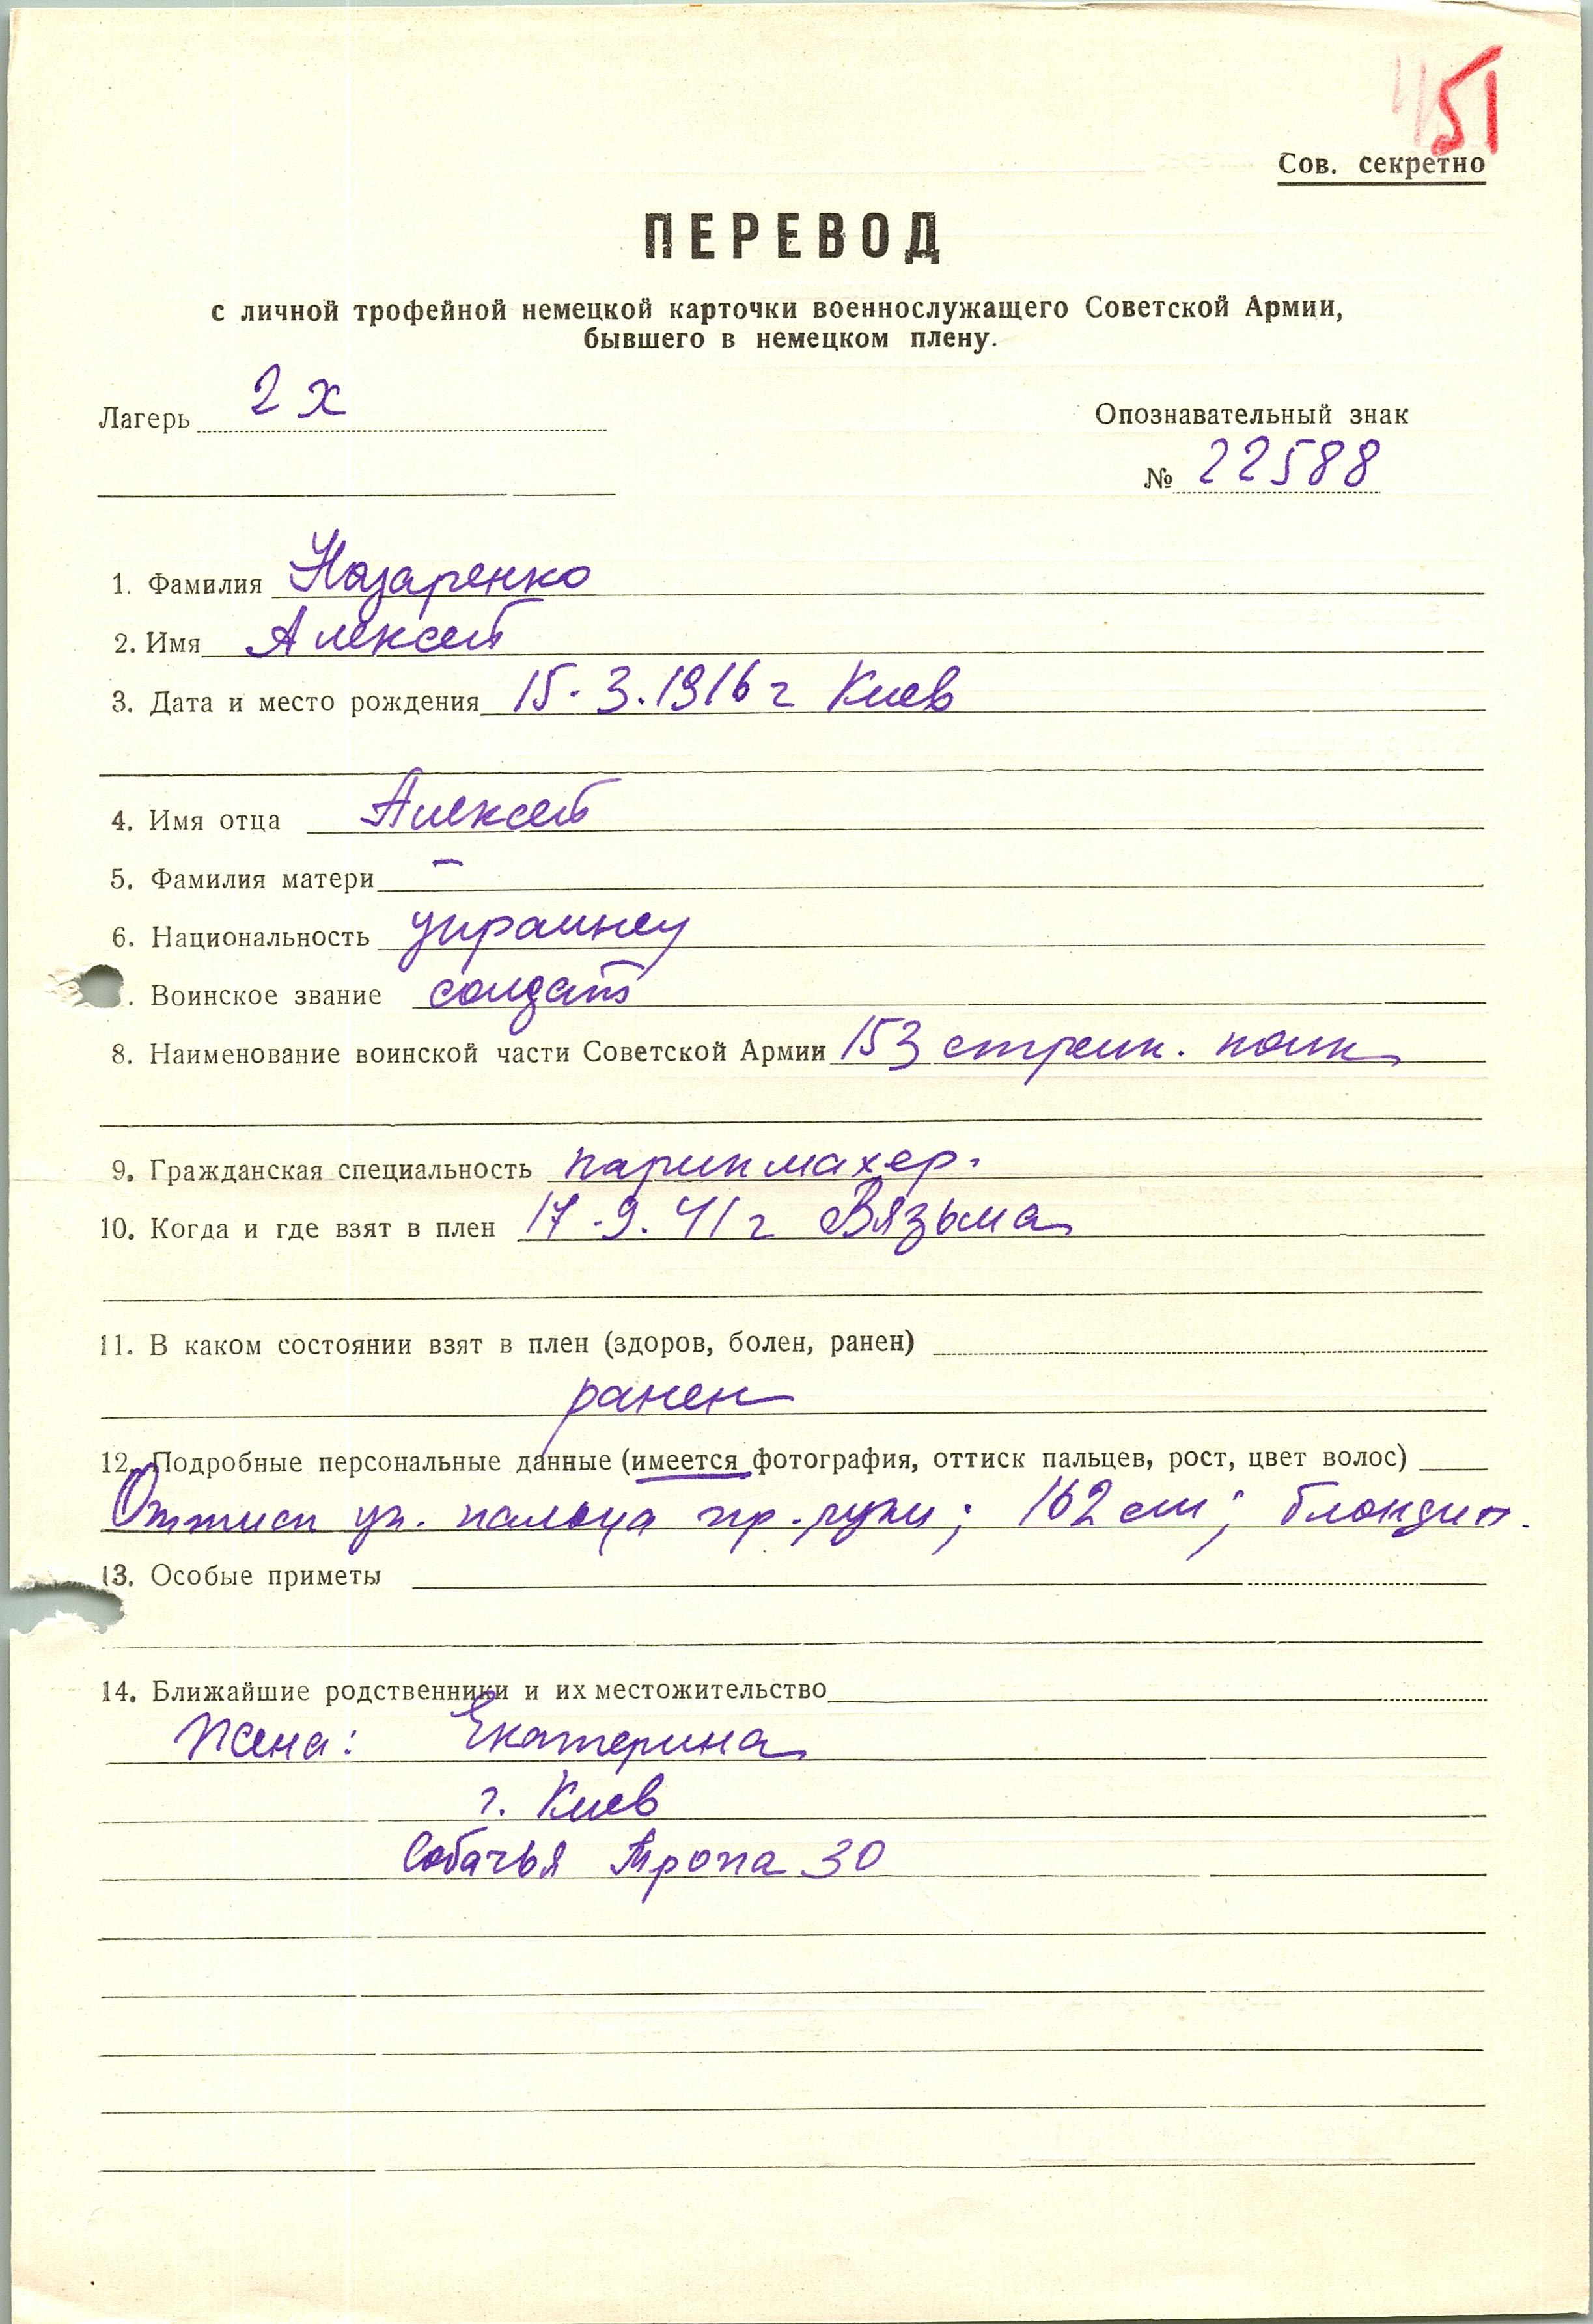 51
Сов. секретно
ПЕРЕВОД
с личной трофейной немецкой карточки военнослужащего Советской Армии,
бывшего в немецком плену.
Лагерь 2 X
Опознавательный знак
№ 22588
1. Фамилия Назаренко
2. Имя Алексей
3. Дата и место рождения 15.3.1916 г Киев
4. Имя отца Алексей
5. Фамилия матери —
6. Национальность украинец
. Воинское звание солдат
8. Наименование воинской части Советской Армии 153 стрелк. полк
9. Гражданская специальность парикмахер.
10. Когда и где взят в плен 17.9.41 г Вязьма
11. В каком состоянии взят в плен (здоров, болен, ранен)
ранен
12. Подробные персональные данные (имеется фотография, оттиск пальцев, рост, цвет волос)
Оттиск ук. пальца пр. руки; 162 см; блондин.
13. Особые приметы
14. Ближайшие родственники и их местожительство
Жена: Екатерина
г. Киев
Собачья Тропа 30